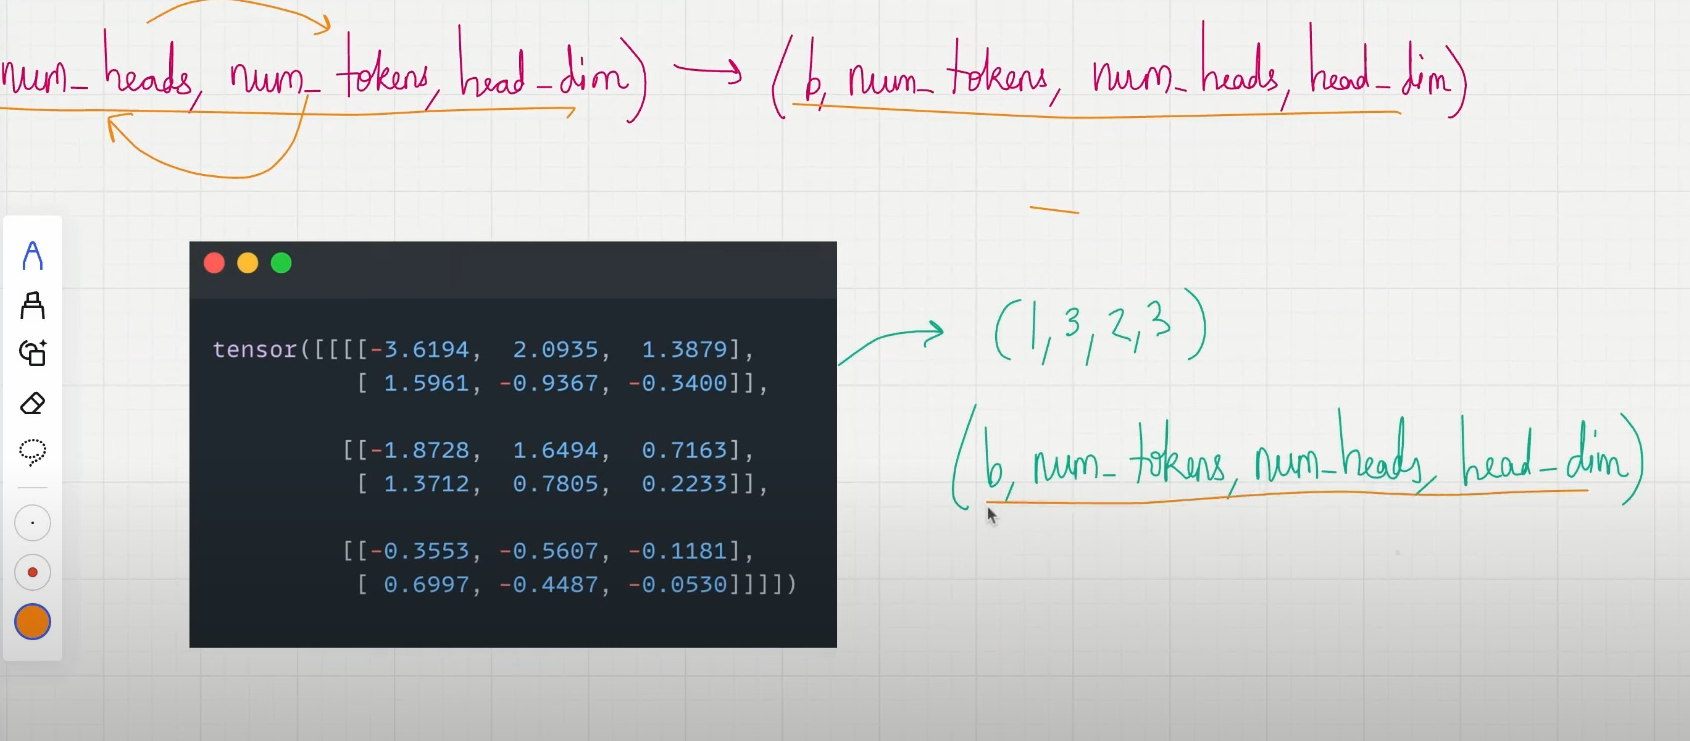 num_heads, num_tokens, head_dim) → (b, num_tokens, num_heads, head_dim)
tensor([[[[-3.6194, 2.0935, 1.3879],
[ 1.5961, -0.9367, -0.3400]],
[[-1.8728, 1.6494, 0.7163],
[ 1.3712, 0.7805, 0.2233]],
[[-0.3553, -0.5607, -0.1181],
[ 0.6997, -0.4487, -0.0530]]]])
(1,3,2,3)
(b, num_tokens, num_heads, head_dim)